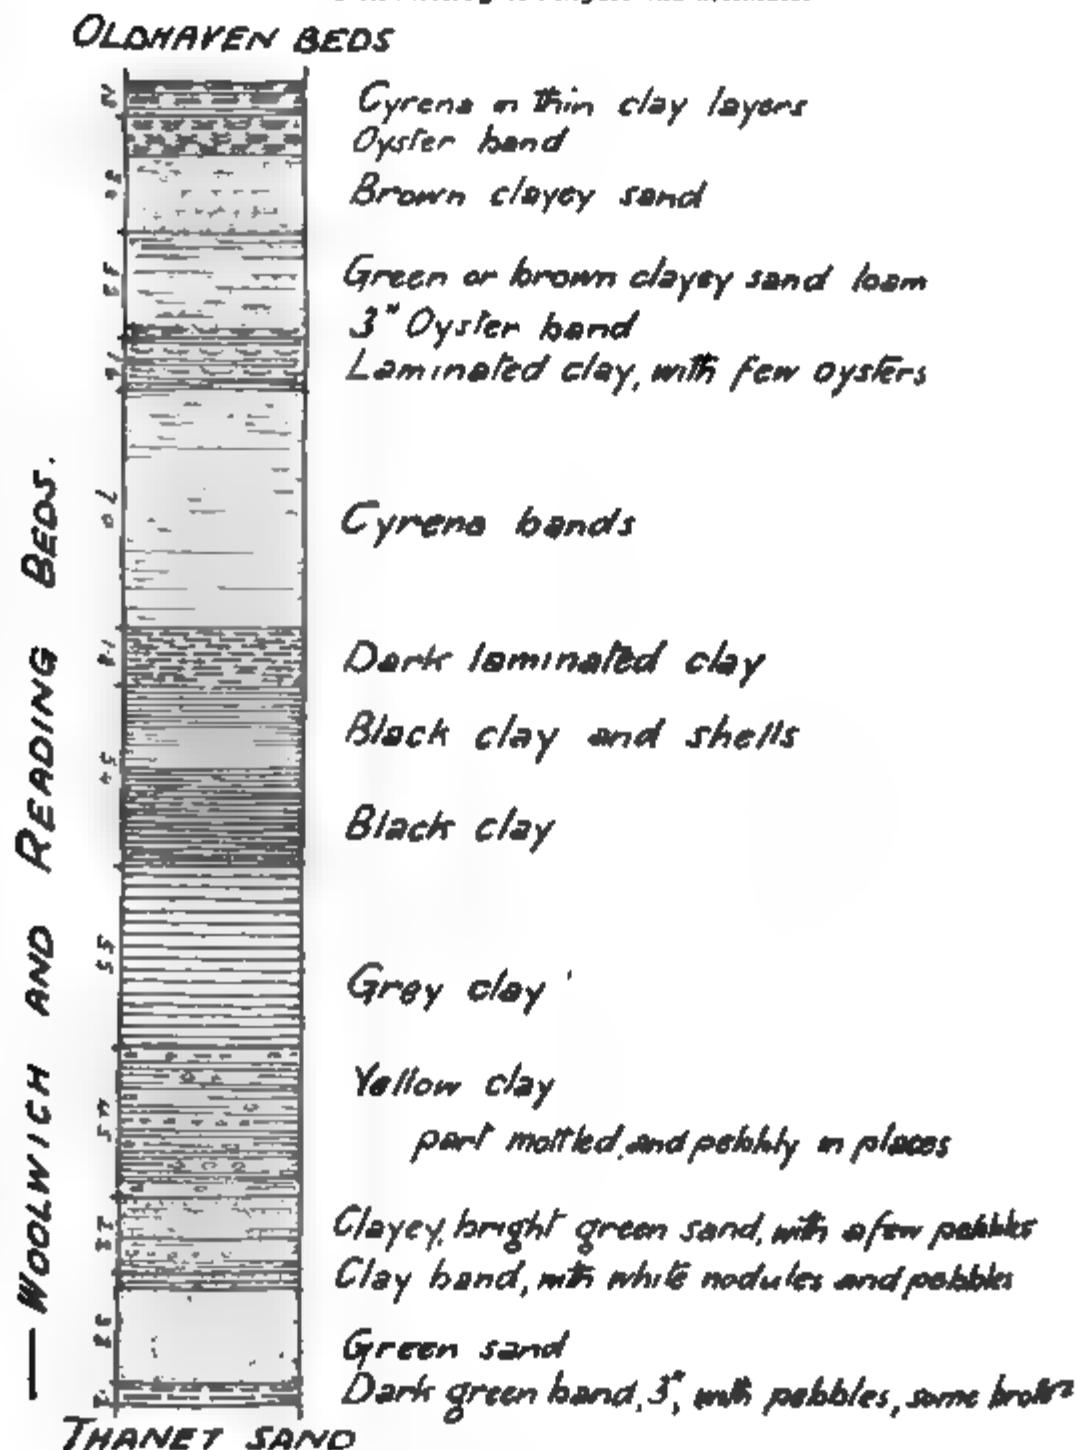 OLDHAVEN BEDS
Cyrena in thin clay layers
Oyster band
Brown clayey sand
Green or brown clayey sand loam
3" Oyster band
Laminated clay, with few oysters
Cyrena bands
Dark laminated clay
Black clay and shells
Black clay
Grey clay
Yellow clay
part mottled, and pebbly in places
Clayey, bright green sand, with a few pebbles
Clay band, with white nodules and pebbles
Green sand
Dark green band, 3", with pebbles, some
WOOLWICH AND READING BEDS.
THANET SAND